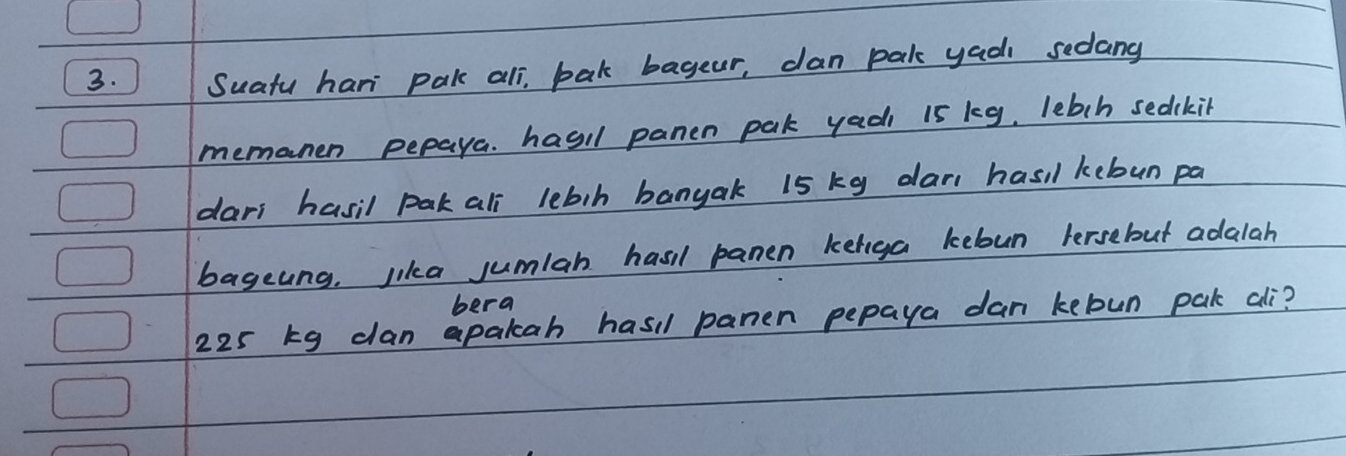 3. Suatu hari pak ali, pak bageur, dan pak yadi sedang
memanen pepaya. hagil panen pak yadi 15 kg, lebih sedikit
dari hasil pak ali lebih banyak 15 kg dari hasil kebun pa
bageung. jika jumlah hasil panen ketiga kebun tersebut adalah
bera
225 kg dan apakah hasil panen pepaya dari kebun pak ali?